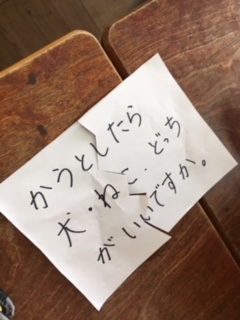 かうとしたら
犬・ねこ、どっち
がいいですか。